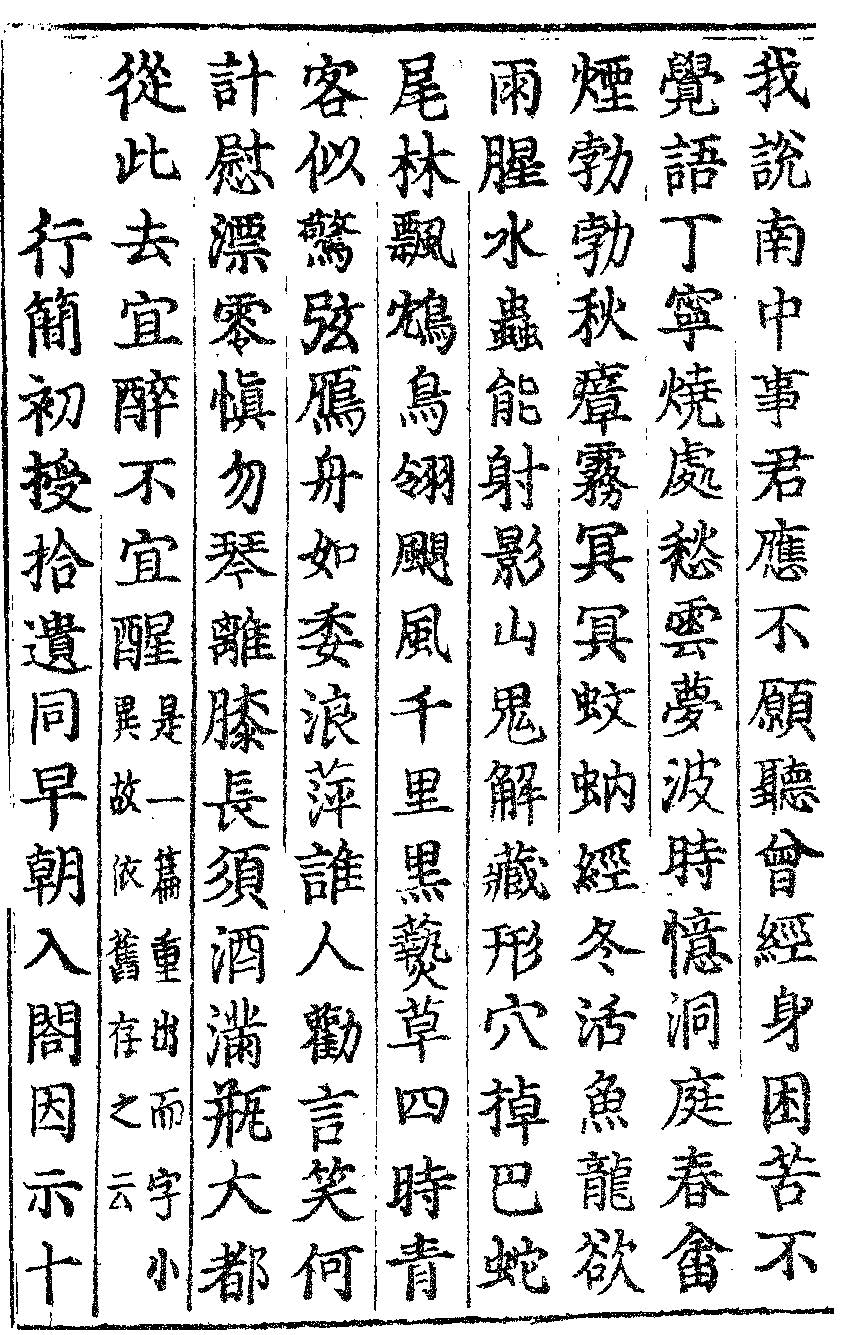 我說南中事君應不願聽曾經身困苦不
覺語丁寧燒處愁雲夢波時憶洞庭春畬
煙勃勃秋瘴霧冥冥蚊蚋經冬活魚龍欲
雨腥水蟲能射影山鬼解藏形穴掉巴蛇
尾林飄鴆鳥翎颶風千里黒䕭草四時青
客似驚弦鴈舟如委浪萍誰人勸言笑何
計慰漂零愼勿琴離膝長須酒滿瓶大都
從此去宜醉不宜醒是一篇重出而字小
異故依舊存之云
行簡初授拾遺同早朝入閤因示十